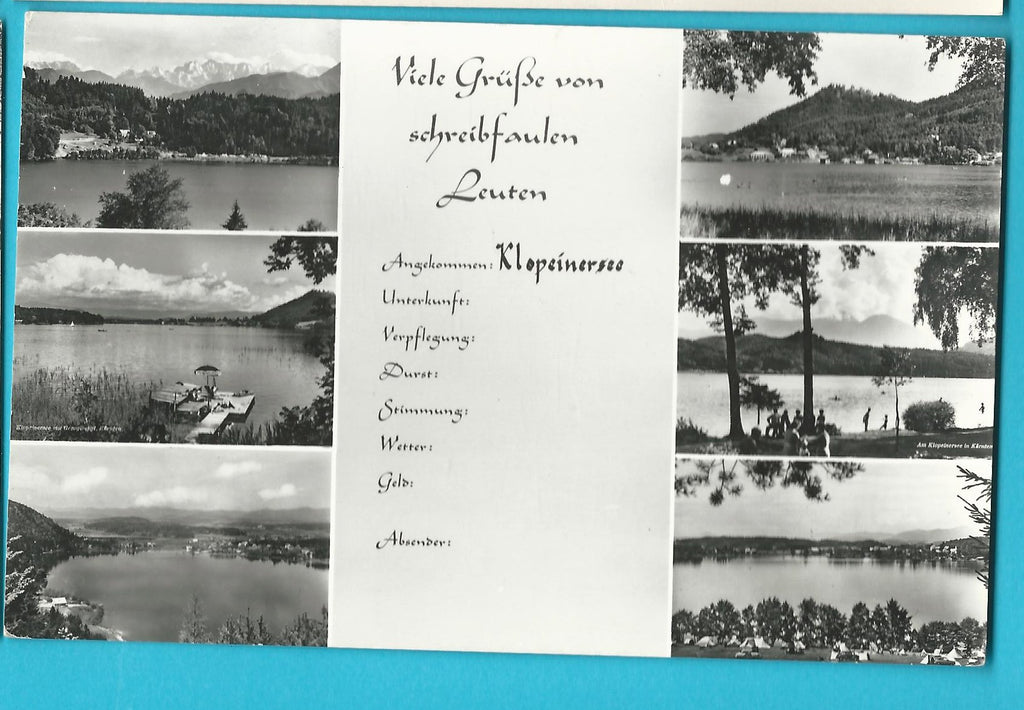 Viele Grüße von
schreibfaulen
Leuten
Angekommen: Klopeinersee
Unterkunft:
Verpflegung:
Durst:
Stimmung:
Wetter:
Geld:
Absender:
Am Klopeinersee in Kärnten